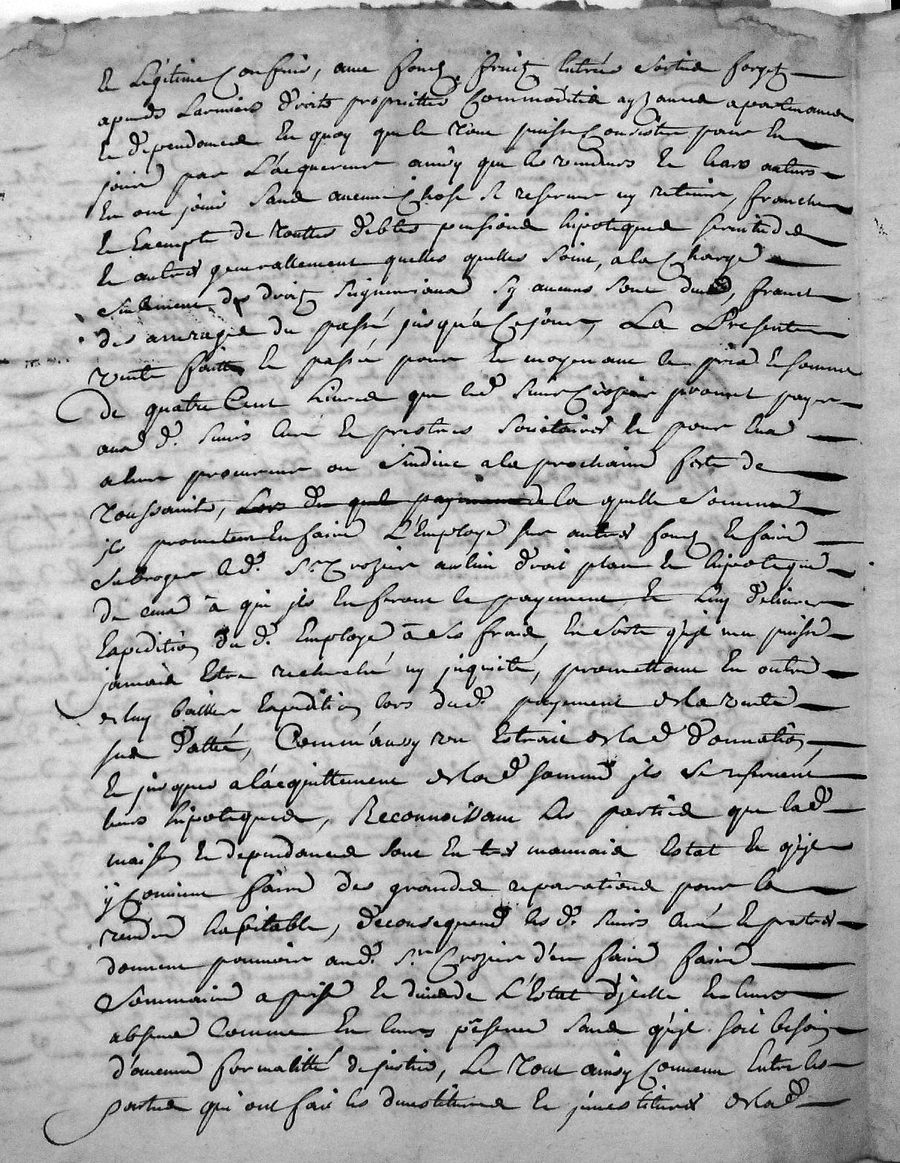 et Légitime Confins, avec fond, fruitz Entrées Sorties forgetz
apends Larmiers d'droits proprietés Commodités aysances apartenances
et d'ependances En quoy que le Tout puisse Consister pour En
jouir par L'acquereur ainsy que les vendeurs Et leurs auteurs
En ont joüi Sans aucune Chose Se reserver ny retenir, franche
et Exempte de Touttes debtes pensions hipoteques Servitudes
et autres generallement quelles quelles Soint, a la Charge
Seulement des droitz Seigneuriaux Sy aucuns Sont dues, franct
des arrerages du passé jusqu'a Cejour, La Presente
vente faitte et passée pour et moyenant le prix Et somme
De quatre Cent Livres que led. Sieur Crozier promet payer
aux d. Sieurs Curé et prestres Societaires et pour Eux
a leur procureur ou Sindic a la prochaine feste de
Toussaints, Lors du quel payement de la quelle Somme
jls promettent En faire L'Employe sur autres fonds Et faire
Subroger led. Sr. Crozier au lieu d'roit place et hipoteque
de ceux à qui jls En feront le payement, Et Luy delivrer
Expedition du d. Employe à Ses frais En Sorte qu'jl n'en puisse
jamais Estre recherché ny jnquieté, promettant En outre
de luy bailler Expedition lors dud. payement de la vente
sus dattée, Comm'aussy un Extrait de la d. Donnation,
Et jusques a l'acquittement de la d. Somme jls Se reservent
leurs hipoteques, Reconnoissant les parties que lad.
maison et dependances sont En tres mauvais Estat Et qu'jl
y Convient faire des grandes reparations pour la
rendre habitable, d'econsequence les d. Sieurs Curé et prestres
donnent pouvoir au d. Sr. Crozier d'en faire faire
Sommaire a prise Et devis de L'Estat d'jcelle En leurs
absence Comme En leurs presence Sans qu'jl Soit besoin
d'aucune formalitté de justice, Le Tout ainsy Convenu Entre les
parties qui ont fait les devestitures Et jnvestitures de la d.